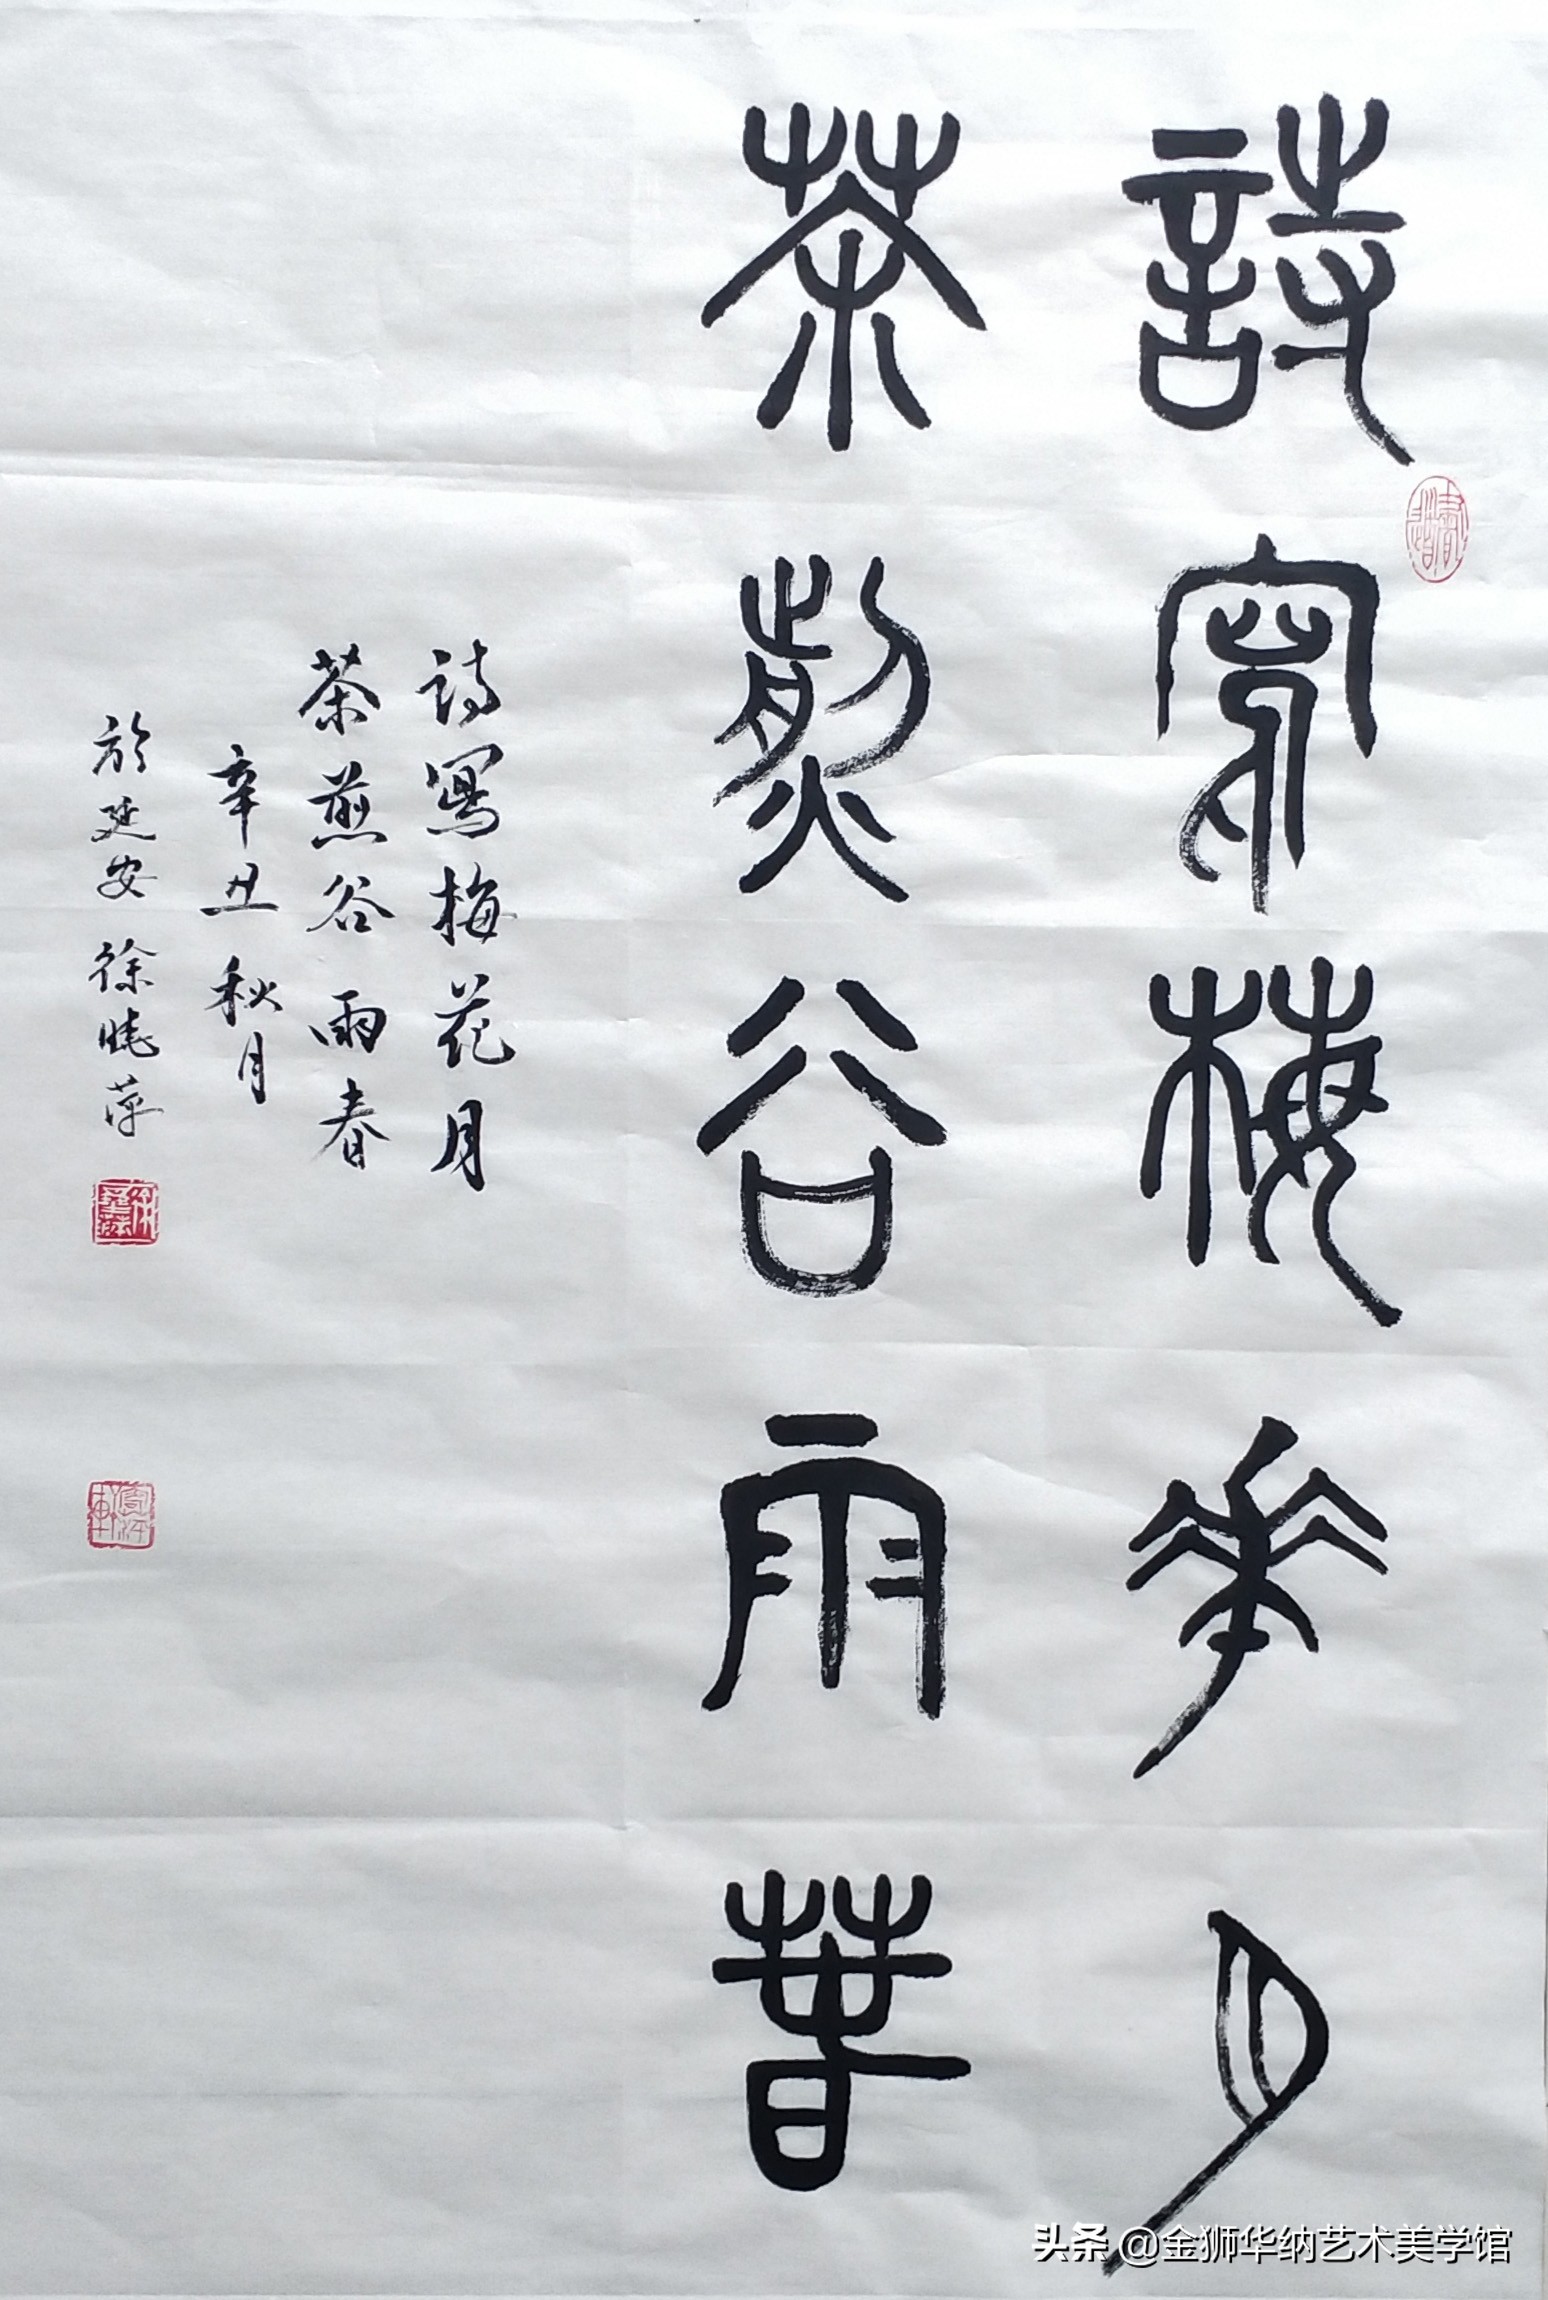 詩寫梅花月
茶煎谷雨春
诗寫梅花月
茶煎谷雨春
辛丑秋月
於延安徐晓萍
头条 @金狮华纳艺术美学馆